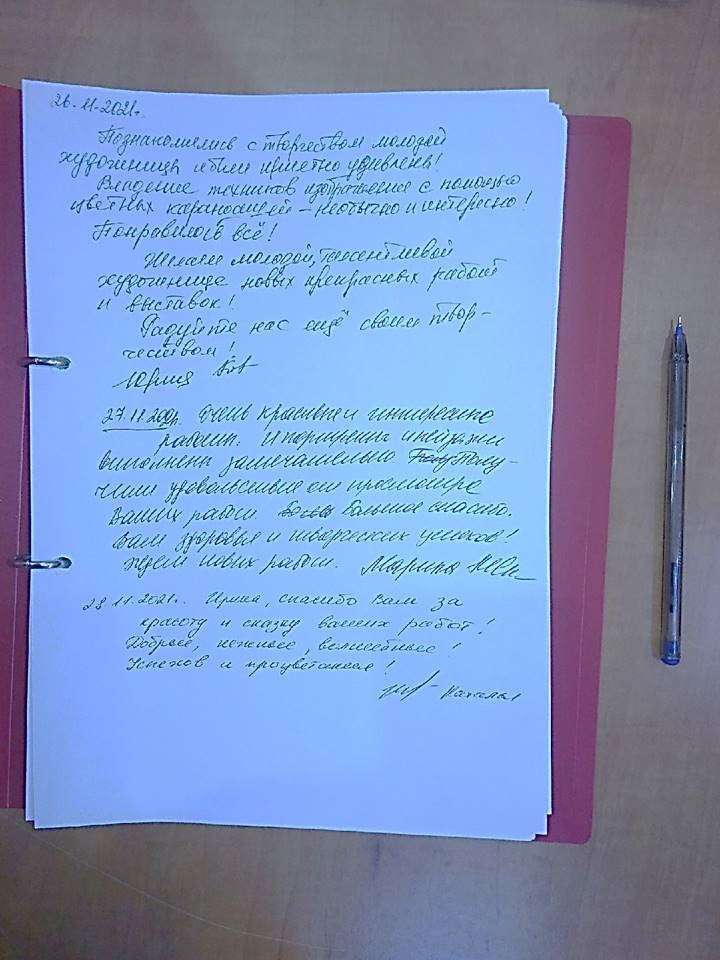 26.11.2021г.
Познакомились с творчеством молодой
художницы и были приятно удивлены!
Владение техникой изображения с помощью
цветных карандашей – необычно и интересно!
Понравилось всё!
Желаем молодой, талантливой
художнице новых прекрасных работ
и выставок!
Радуйте нас ещё своим твор-
чеством!
Юрий
27.11.2021г. Очень красивые и интересные
работы. И портреты и пейзажи
выполнены замечательно Полу-
чили удовольствие от просмотра
Ваших работ. Большое спасибо.
Вам здоровья и творческих успехов!
Ждем новых работ. Марина
28.11.2021г. Ирина, спасибо Вам за
красоту и сказку ваших работ!
Добрые, нежные, волшебные!
Успехов и процветания!
Наталья